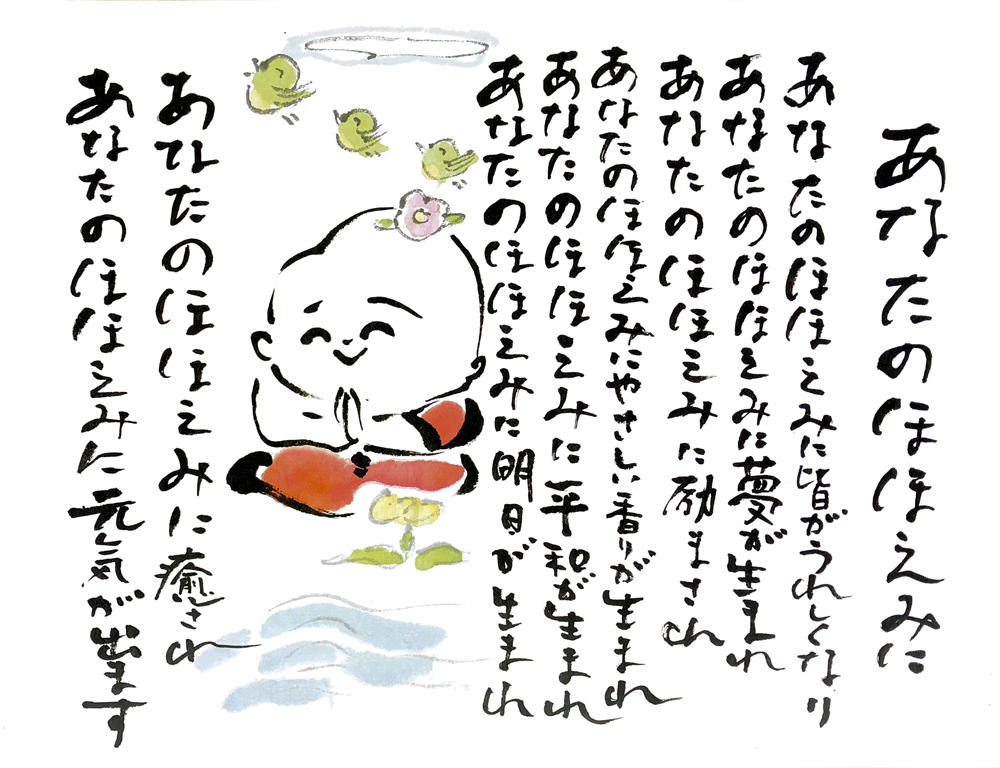 あなたのほほえみに
あなたのほほえみに皆がうれしくなり
あなたのほほえみに夢が生まれ
あなたのほほえみに励まされ
あなたのほほえみにやさしい香りが生まれ
あなたのほほえみに平和が生まれ
あなたのほほえみに明日が生まれ
あなたのほほえみに癒され
あなたのほほえみに元気が出ます